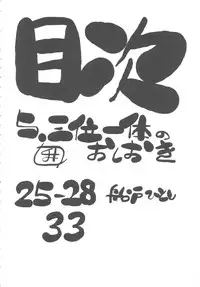 目次
三位一体の
おしおき
25-28 船戸ひとし
33